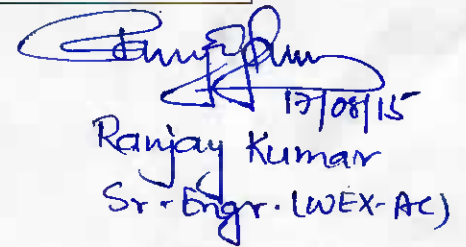 17/08/15
Ranjay Kumar
Sr. Engr. (WEX-AC)